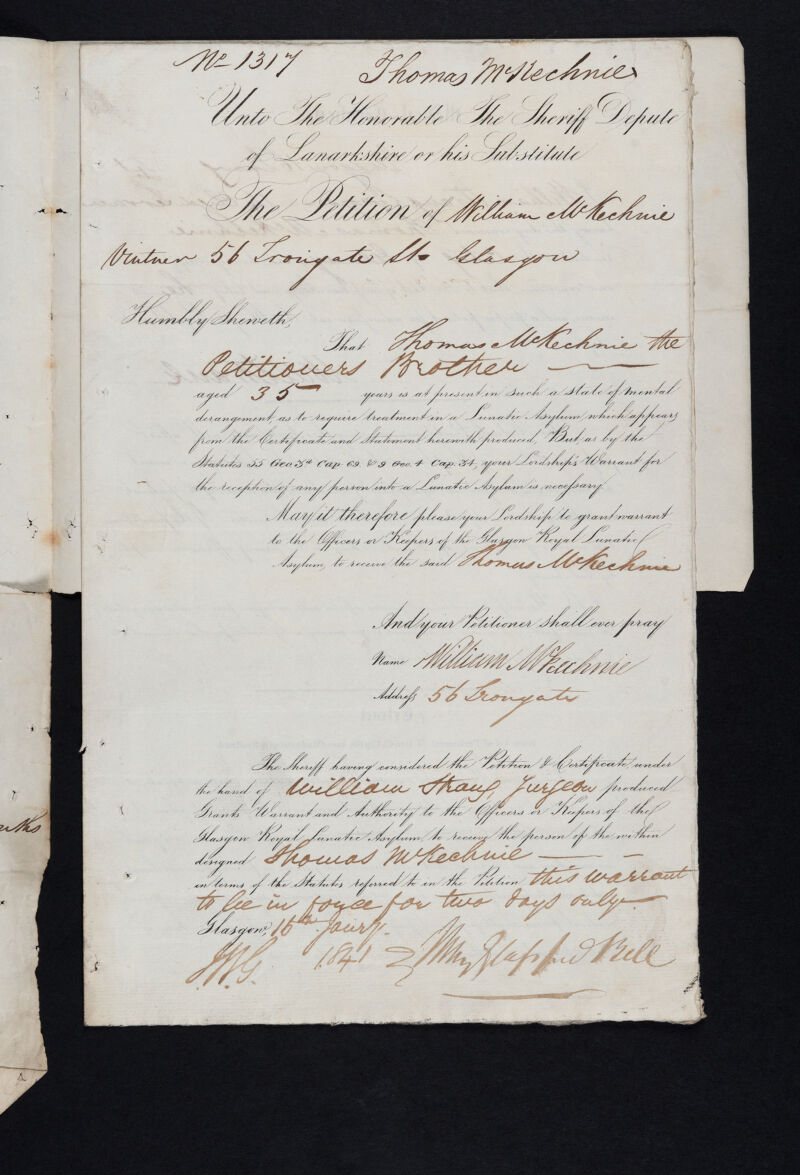 No 1317 Thomas McKechnie
Unto The Honorable The Sheriff Depute
of Lanarkshire or his Substitute
The Petition of William McKechnie
Vintner 56 Trongate St. Glasgow
Humbly Sheweth,
That Thomas McKechnie the
Petitioners Brother
aged 35 years is at present in such a state of mental
derangement, as to require treatment in a Lunatic Asylum, which appears
from the Certificate and Statement herewith produced, But, as by the
Statutes 55 Geo. 3d Cap. 69. & 9 Geo. 4 Cap. 34, your Lordship's Warrant for
the reception of any person into a Lunatic Asylum is necessary
May it therefore please your Lordship to grant warrant
to the Officers or Keepers of the Glasgow Royal Lunatic
Asylum, to receive the said Thomas McKechnie
And your Petitioner shall ever pray
Name William McKechnie
Address 56 Trongate
The Sheriff having considered the Petition & Certificate, under
the hand of William Strang Surgeon produced
Grants Warrant and Authority to the Officers or Keepers of the
Glasgow Royal Lunatic Asylum, to receive the person of the within
designed Thomas McKechnie
in terms of the Statutes referred to in the Petition this warrant
to be in force for two days only
Glasgow, 16th Jany.
1841 Bell